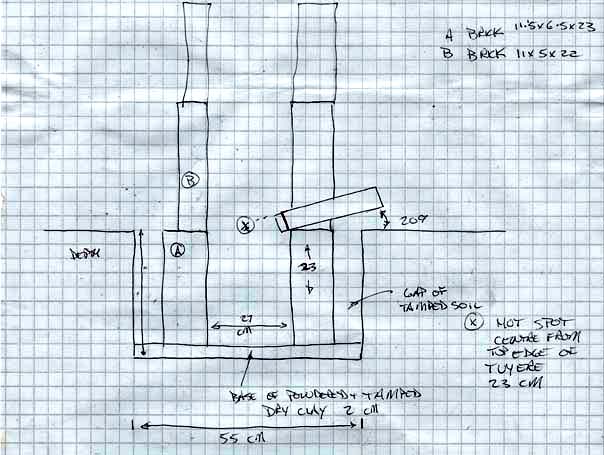 A BRICK 11.5x6.5x23
B BRICK 11x5x22
B
X
20º
A
DEPTH
23
GAP OF
TAMPED SOIL
27
CM
X HOT SPOT
CENTRE FROM
TOP EDGE OF
TUYERE
23 CM
BASE OF POWDERED + TAMPED
DRY CLAY 2 CM
55 CM